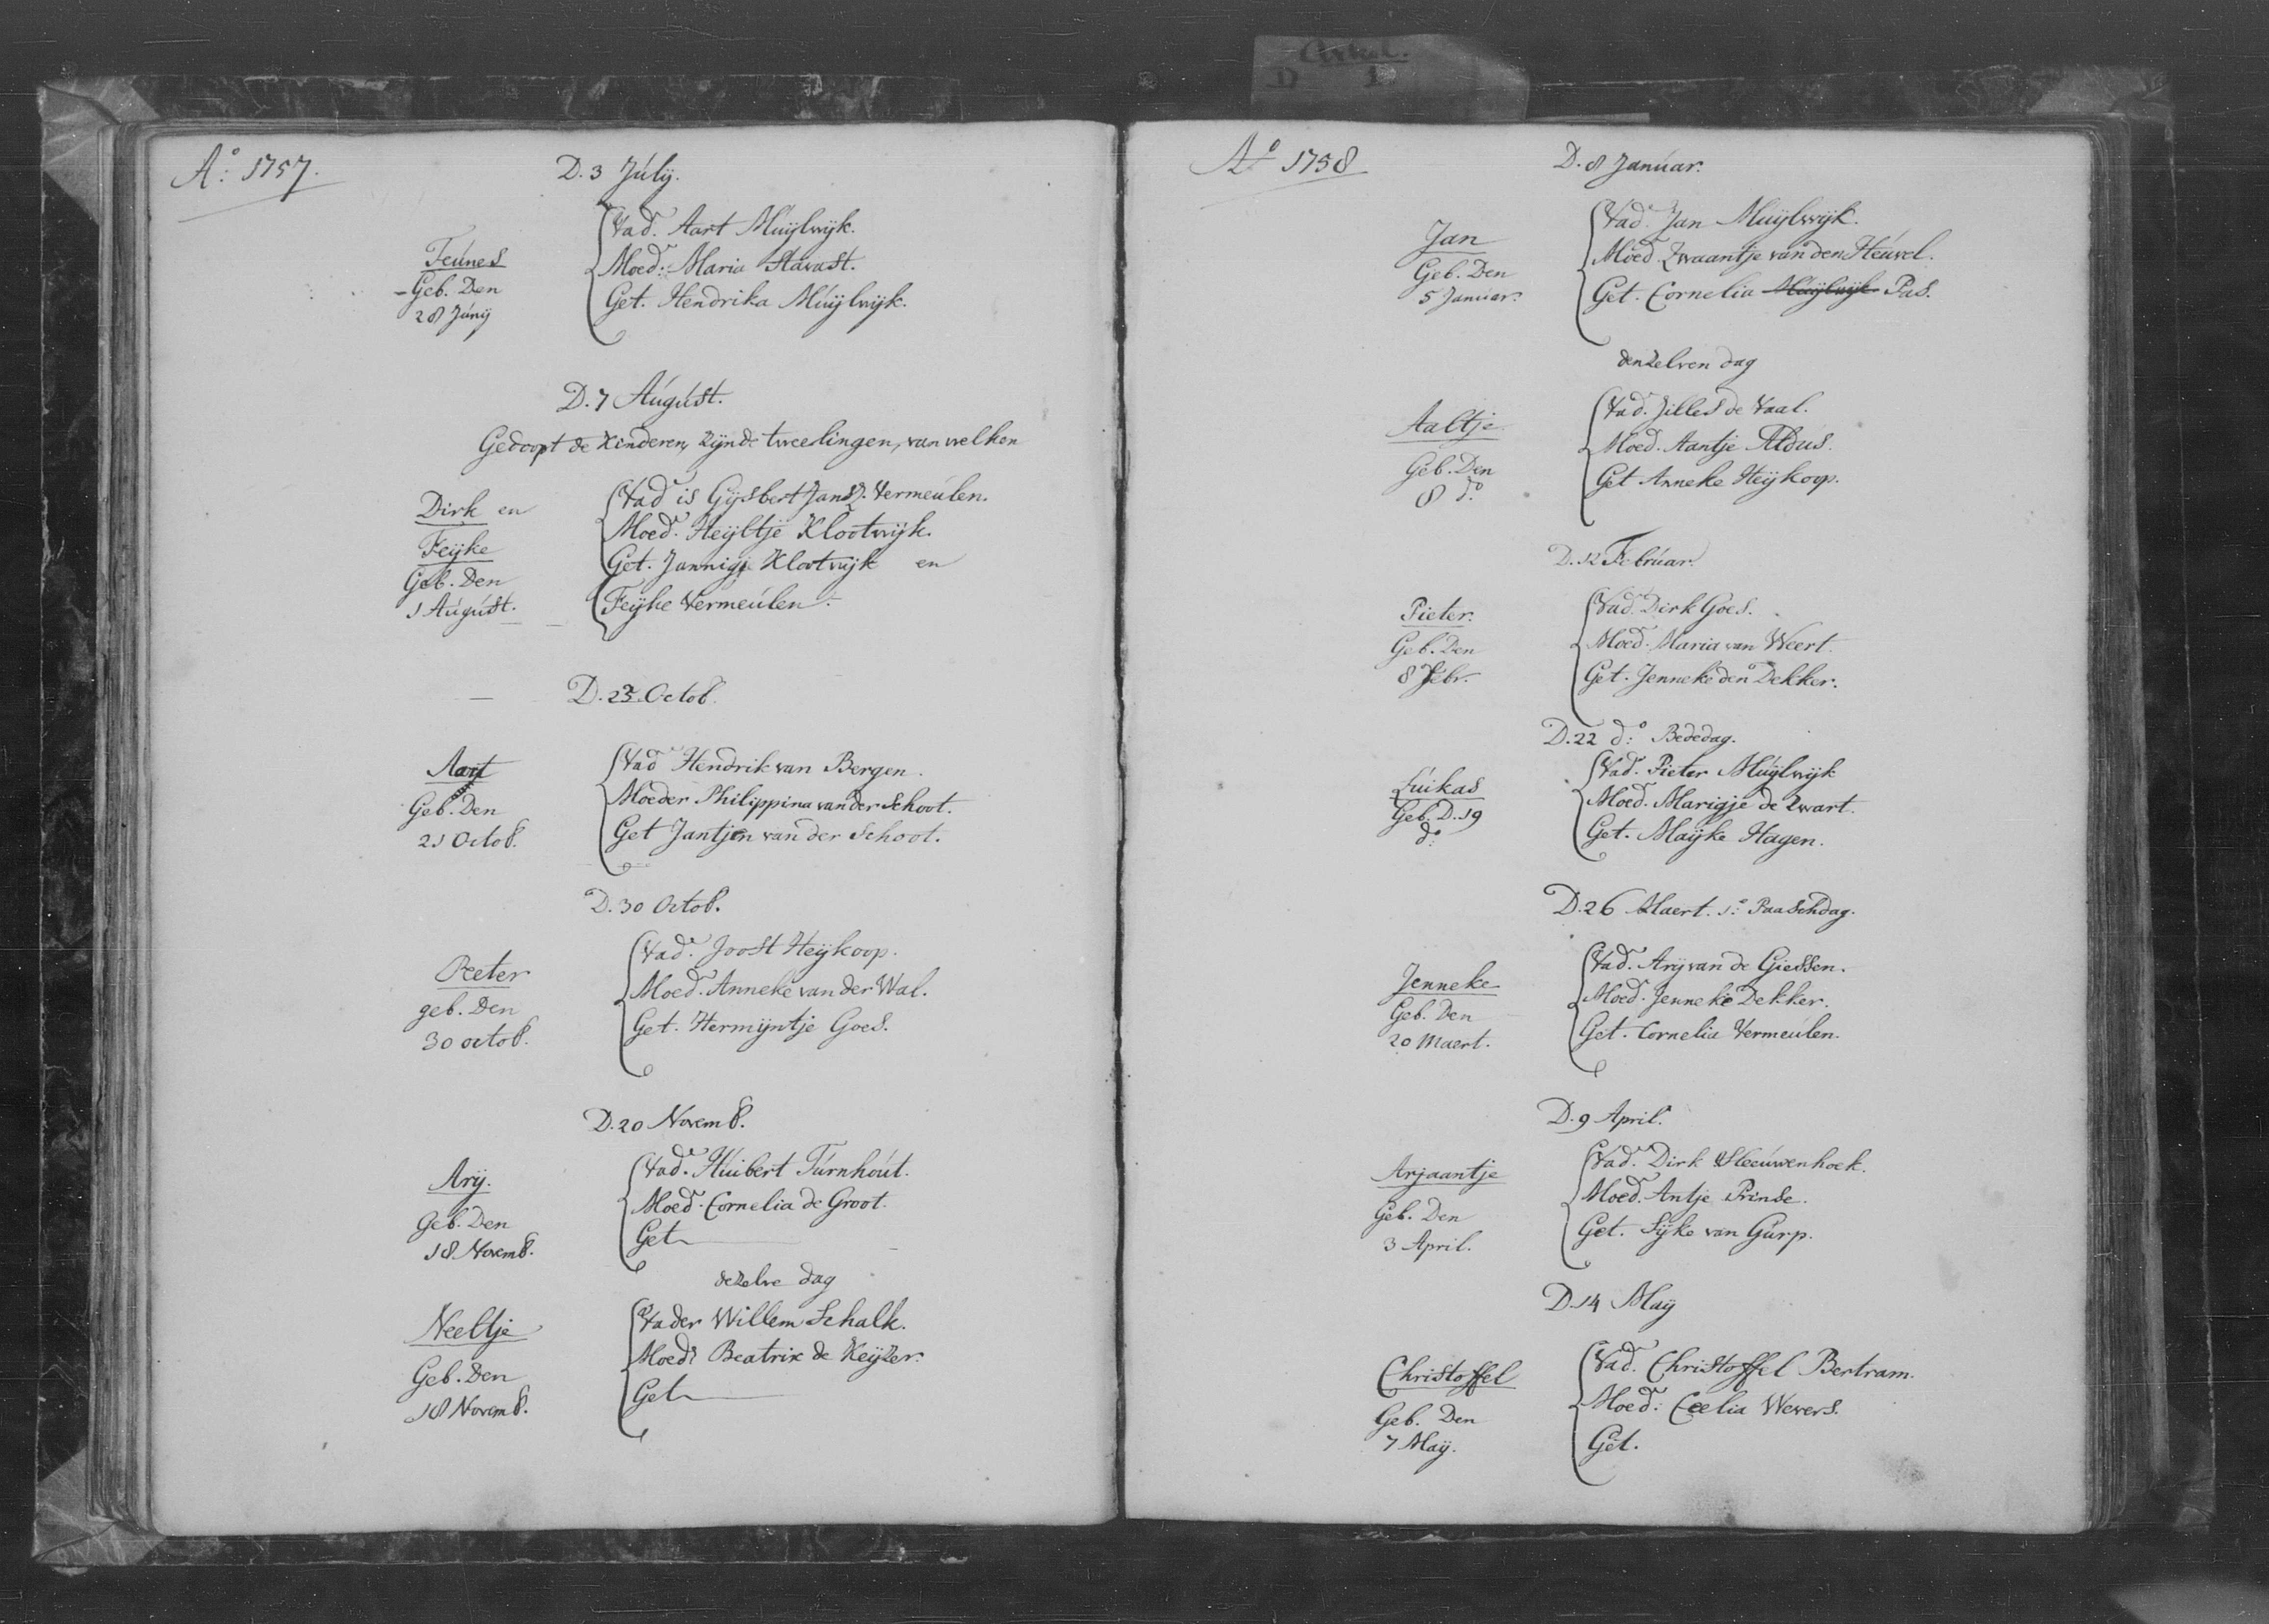 Arkel.
D 1
Aº: 1757.
D. 3 Júlij.
Teúnes
Geb. Den
28 Júnij
Vadr. Aart Muijlwijk.
Moedr: Maria Stavast.
Get. Hendrika Múijlwijk.
D. 7 Aúgúst.
Gedoopt de Kinderen, zijnde tweelingen, van welken
Dirk en
Feijke
Geb. Den
1 Aúgúst.
Vadr is Gijsbert Jansz. Vermeúlen.
Moedr. Heijltje Klootwijk.
Get. Jannigje Klootwijk en
Feijke Vermeúlen.
D. 23 Octob.
Aart
Geb. Den
21 Octob.
Vadr Hendrik van Bergen.
Moeder Philippina van der Schoot.
Get Jantjen van der Schoot.
D. 30 Octob.
Peeter
geb. Den
30 octob.
Vadr. Joost Heijkoop.
Moedr. Anneke van der Wal.
Get. Hermijntje Goes.
D. 20 Novemb.
Arij.
Geb. Den
18 Novemb.
Vadr. Húibert Túrnhoút.
Moedr. Cornelia de Groot.
Get
dezelve dag
Neeltje
Geb. Den
18 Novemb.
Vader Willem Schalk.
Moedr Beatrix de Keijzer.
Get
Aº 1758
D. 8 Janúar.
Jan
Geb. Den
5 Janúar.
Vadr. Jan Muijlwijk.
Moedr. Zwaantje van den Heúvel.
Get. Cornelia Muijlwijk Pas.
denzelven dag
Aaltje
Geb. Den
8 dº
Vadr. Jilles de Vaal.
Moedr. Aantje Aldus.
Get Anneke Heijkoop.
D. 12 Febrúar.
Pieter.
Geb. Den
8 Febr.
Vadr. Dirk Goes.
Moedr. Maria van Weert.
Get. Jenneke den Dekker.
D. 22 dº: Bededag.
Lúikas
Geb. D. 19
dº:
Vadr. Pieter Múijlwijk
Moedr. Marigje de Zwart.
Get. Maijke Hagen.
D. 26 Maert. 1e: Paaschdag.
Jenneke
Geb. Den
20 Maert.
Vadr. Arij van de Giessen.
Moedr. Jenneke Dekker.
Get. Cornelia Vermeúlen.
D. 9 April.
Arjaantje
Geb. Den
3 April.
Vadr. Dirk Sleeúwenhoek.
Moedr. Antje Prinse.
Get. Sijke van Gúrp.
D. 14 Maij
Christoffel
Geb. Den
7 Maij.
Vadr. Christoffel Bertram.
Moedr: Ceelia Wevers.
Get.